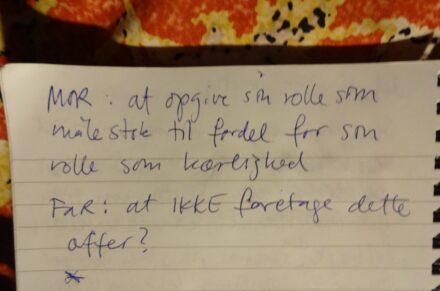 MOR : at opgive sin rolle som
målestok til fordel for sin
rolle som kærlighed
FAR : at IKKE foretage dette
offer?
*